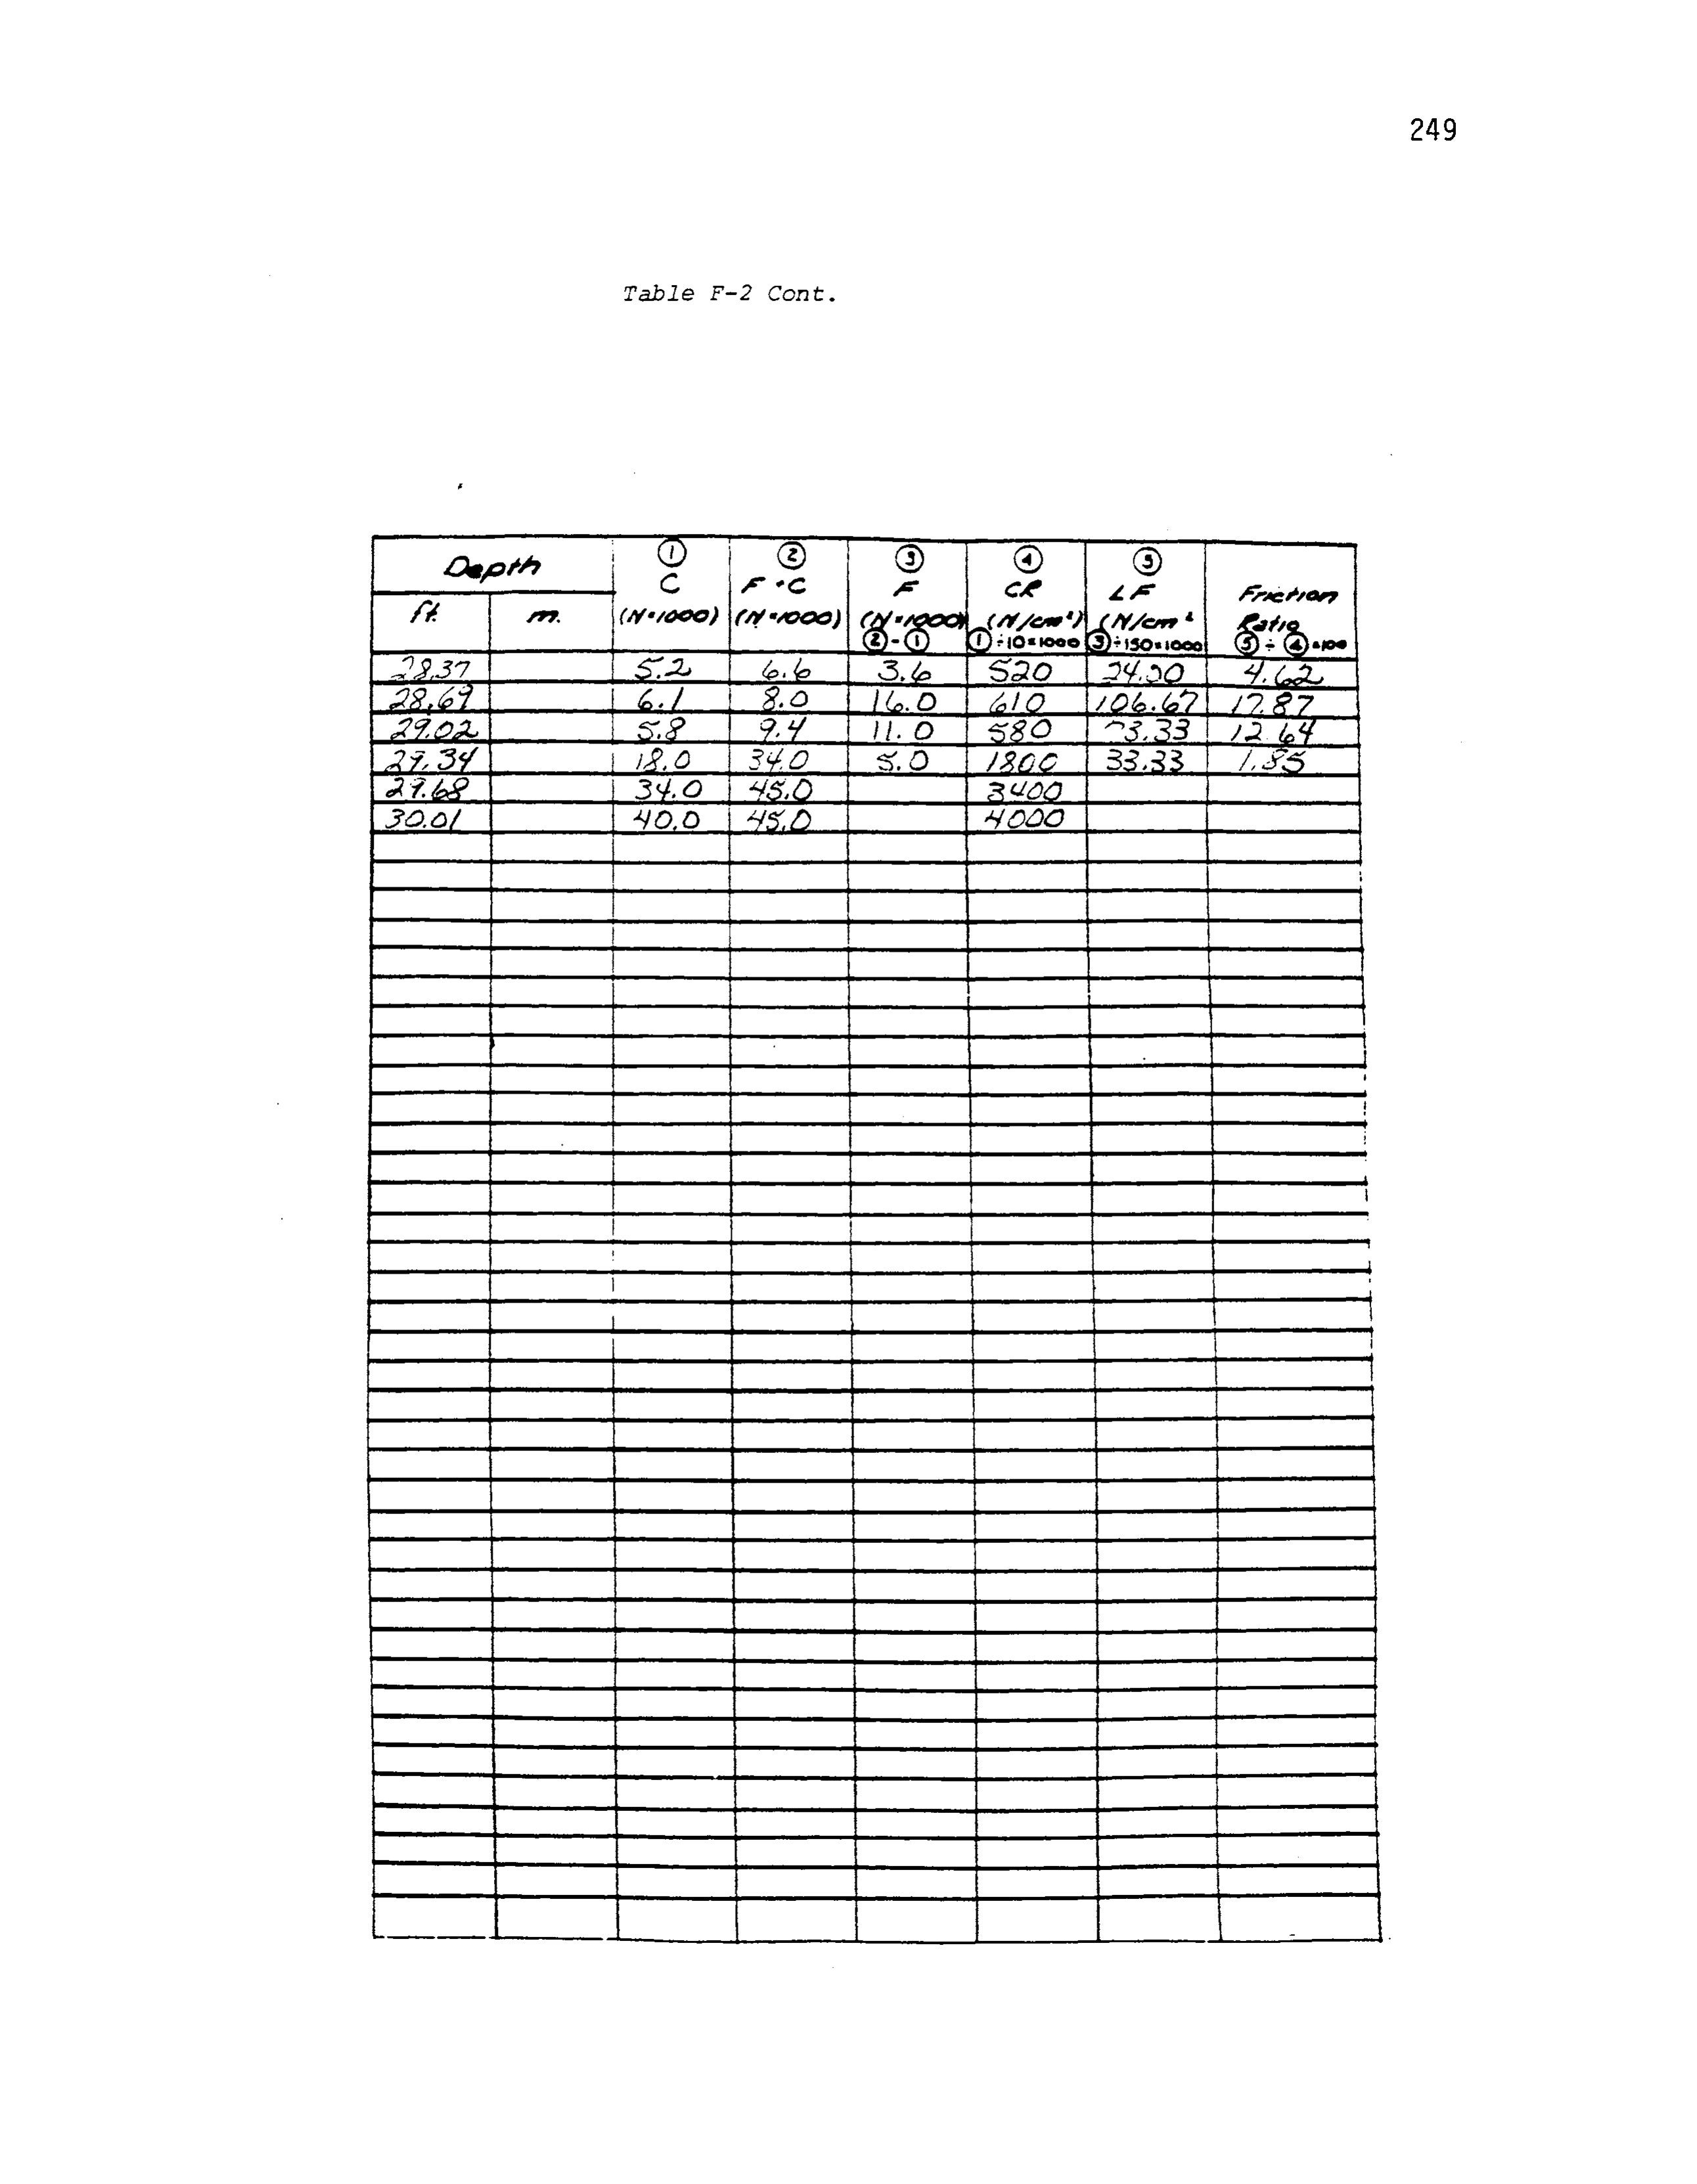 249
Table F-2 Cont.
Depth ① ② ③ ④ ⑤
C F+C F CR LF Friction
ft. m. (N×1000) (N×1000) (N×1000) (N/cm²) (N/cm² Ratio
②-① ①÷10×1000 ③÷150×1000 ⑤÷④×100
28.37 5.2 6.6 3.6 520 24.00 4.62
28.69 6.1 8.0 16.0 610 106.67 17.87
29.02 5.8 9.4 11.0 580 73.33 12.64
29.34 18.0 34.0 5.0 1800 33.33 1.85
29.68 34.0 45.0 3400
30.01 40.0 45.0 4000